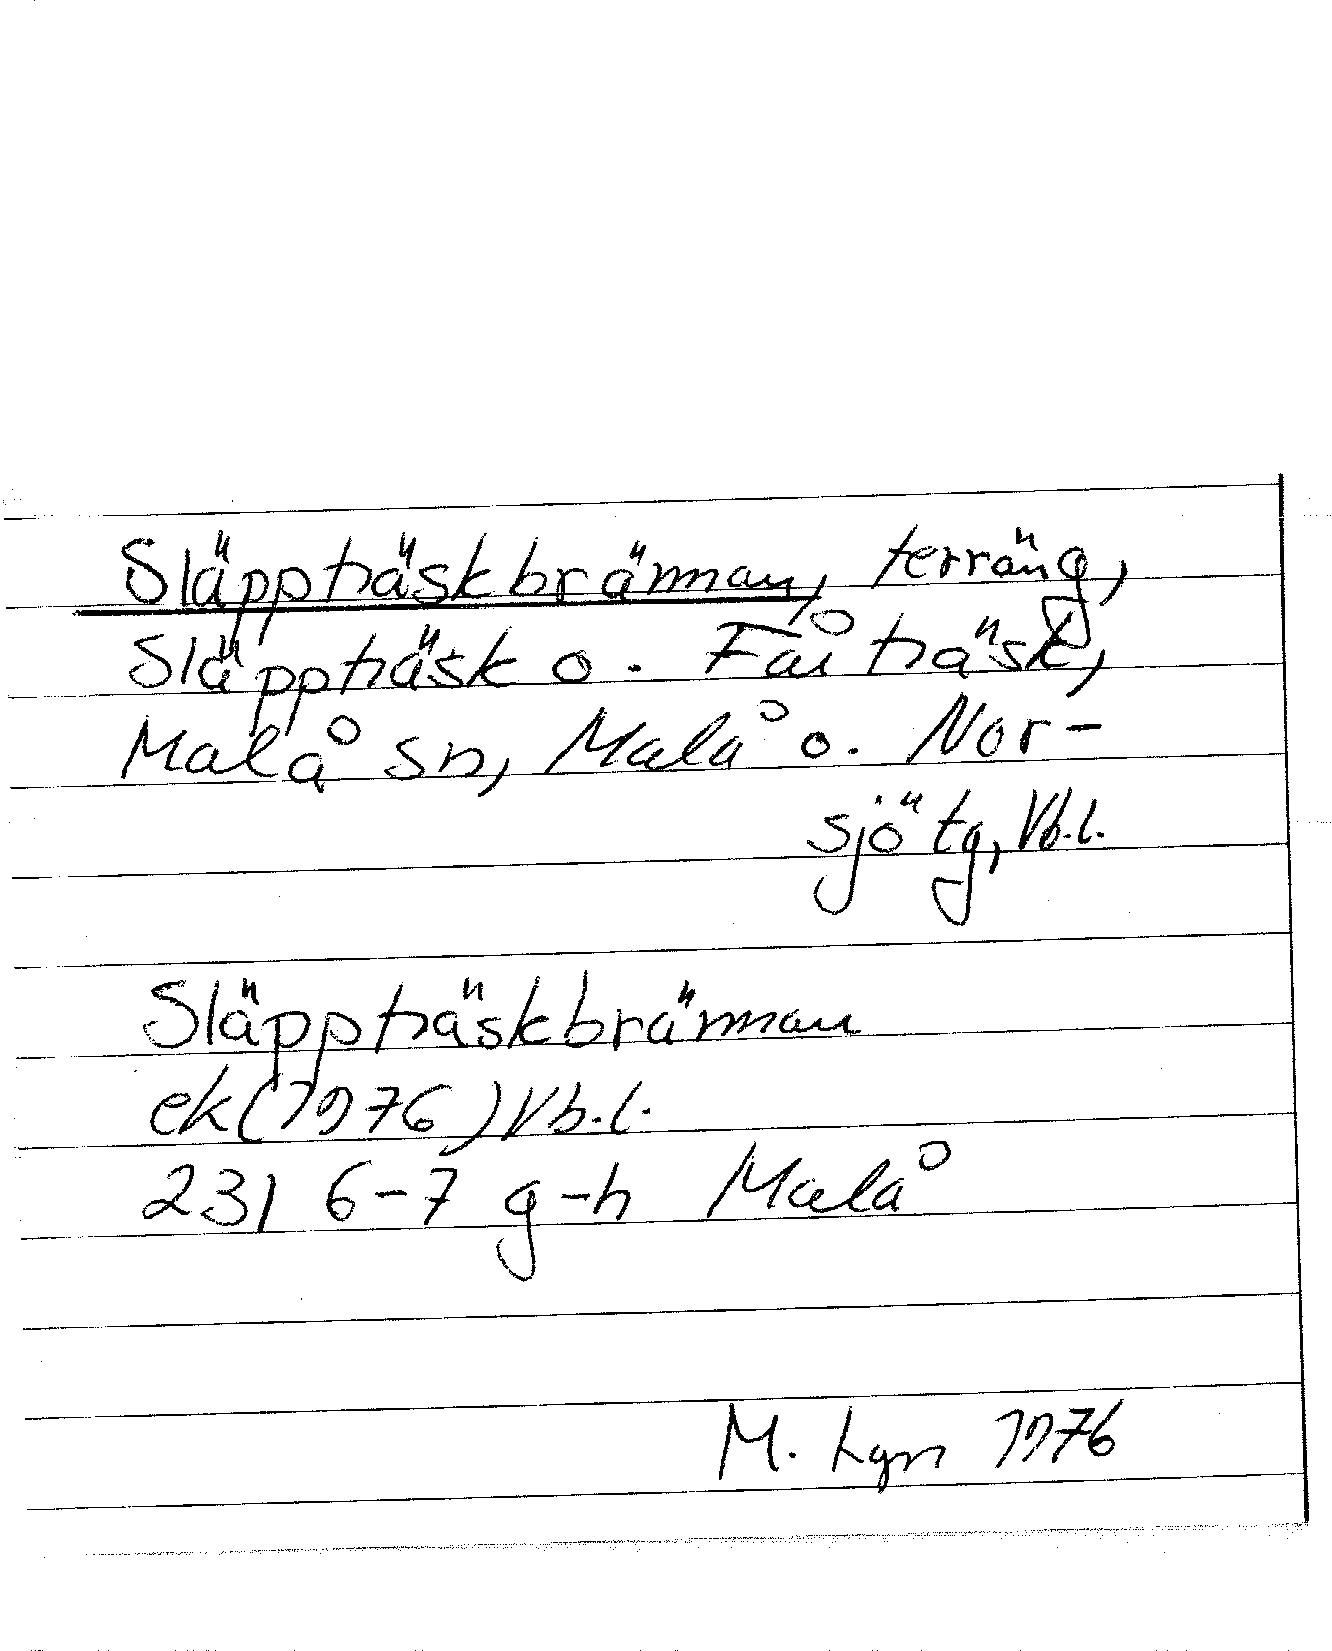 Släppträskbrännan, terräng,
Släppträsk o. Fårträsk,
Malå sn, Malå o. Nor-
sjö tg, Vb.l.
Släppträskbrännan
ek(1976)Vb.l.
231 6-7 g-h Malå
M. 1976